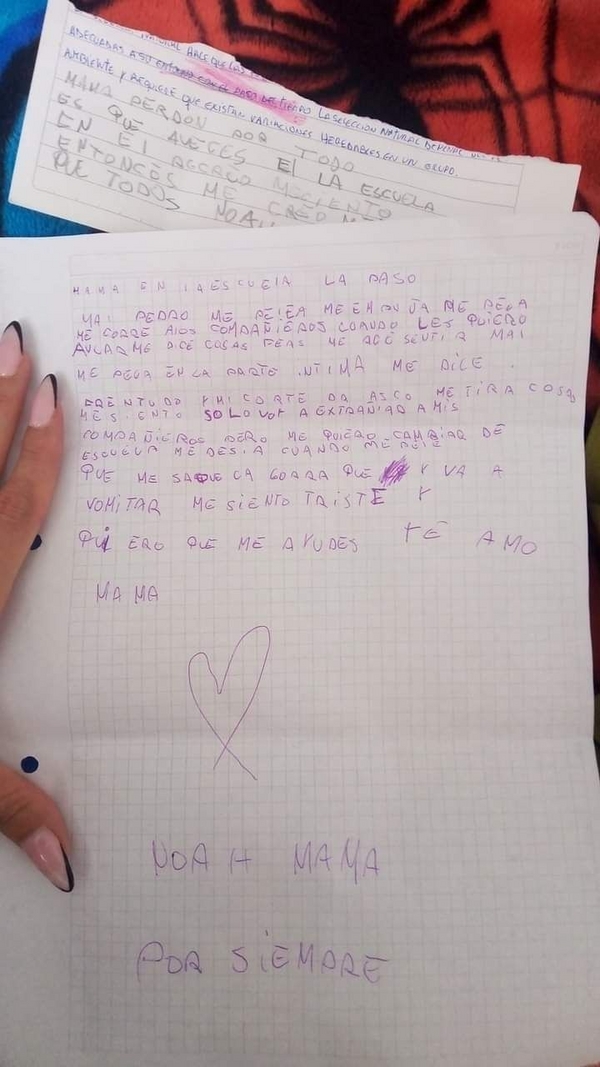 NATURAL HACE QUE LAS
ADECUADAS A SU ENTORNO CON EL PASO DEL TIEMPO. LA SELECCION NATURAL DEPENDE DEL
AMBIENTE Y REQUIERE QUE EXISTAN VARIACIONES HEREDABLES EN UN GRUPO.
MAMA PERDON POR TODO
ES QUE AVECES EL LA ESCUELA
EN EL RECREO ME SIENTO
ENTONCES ME CREO
QUE TODOS NOAH
MAMA EN LA ESCUELA LA PASO
MAL PEDRO ME PELEA ME EMPUJA ME PEGA
ME CORRE A LOS COMPAÑIEROS CUANDO LES QUIERO
ABLAR ME DICE COSAS FEAS ME ACE SENTIR MAL
ME PEGA EN LA PARTE INTIMA ME DICE
DRENTUDO Y MI CORTE DA ASCO ME TIRA COSAS
ME SIENTO SOLO VOY A EXTRAÑIAR A MIS
COMPAÑIEROS PERO ME QUIERO CAMBIAR DE
ESCUELA ME DESIA CUANDO ME
QUE ME SAQUE LA GORRA QUE Y VA A
VOMITAR ME SIENTO TRISTE Y
QUIERO QUE ME AYUDES TE AMO
MAMA
NOAH MAMA
POR SIEMPRE